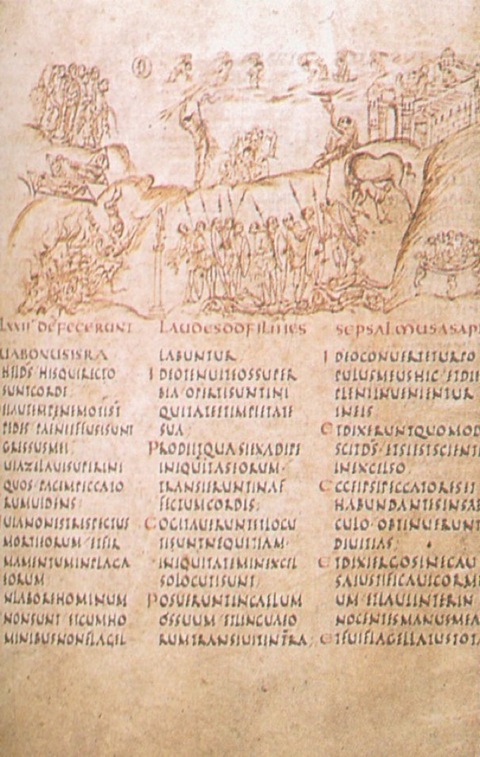 DEFECERUNT LAUDES DD FILII IES SE PSALMUS ASAP
UABONUSISRA
HELDS HISQUIRECTO
SUNTCORDE
IIAUTEMPENEMOTIST
PEDIS PAENEEFFUSISUNT
GRESSUSMEI
UIAZELAUISUPERINI
QUOS PACEMPECCATO
RUMUIDENS
UIANONESTRESPECTUS
MORTIEORUM ETFIR
MAMENTUMINPLAGA
EORUM
NLABOREHOMINUM
NONSUNT ETCUMHO
MINIBUSNONFLAGEL
LABUNTUR
IDEOTENUITEOSSUPER
BIA OPERTISUNTINI
QUITATEETIMPIETATE
SUA
PRODIITQUASIEXADIPE
INIQUITASEORUM·
TRANSIERUNTINAF
FECTUMCORDIS·
COGITAUERUNTETLOCU
TISUNTNEQUITIAM·
INIQUITATEMINEXCEL
SOLOCUTISUNT
POSUERUNTINCAELUM
OSSUUM ETLINGUAEO
RUMTRANSIUITINTRA;
IDEOCONUERTETURPO
PULUSMEUSHIC ETDIE
PLENIINUENIENTUR
INEIS
ETDIXERUNTQUOMOD
SCITDS ETSIESTSCIENTI
INEXCELSO
ECCEIPSIPECCATORESET
HABUNDANTESINSAE
CULO OBTINUERUNT
DIUITIAS
ETDIXIERGOSINECAU
SAIUSTIFICAUICORME
UM ETLAUIINTERIN
NOCENTESMANUSMEA
ETFUIFLAGELLATUSTOTA